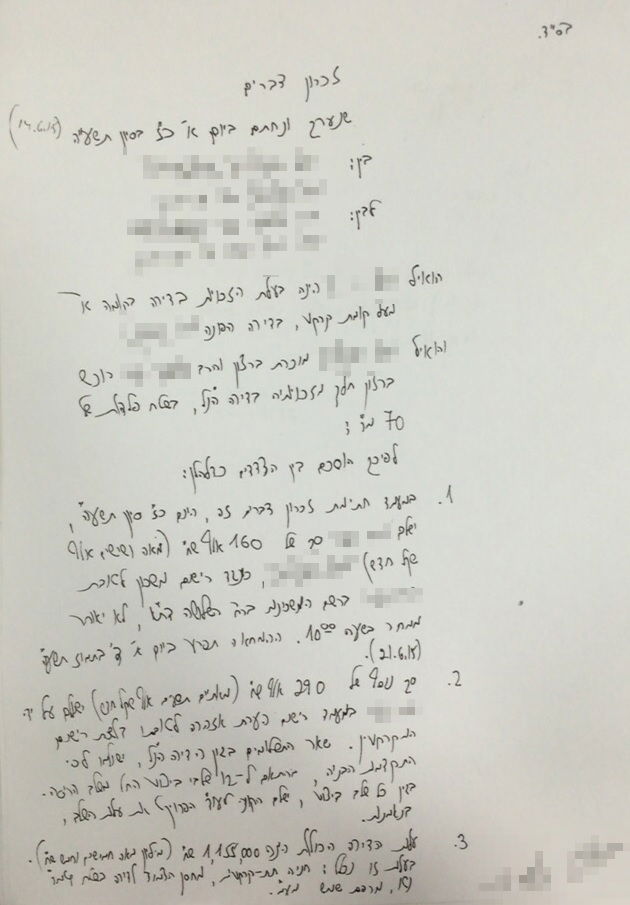 בס״ד.
זכרון דברים
שנערך ונחתם ביום א׳ כ״ז בסיון תשע״ה (14.6.15)
בין:
לבין:
הואיל הינה בעלת הזכויות בדירה בקומה א׳
מעל קומת קרקע, בדירה הפונה
והואיל מוכרת ברצון והרב רוכש
ברצון חלק מזכויותיה בדירה הנ״ל, בשטח פלדלת של
70 מ״ר;
לפיכך הוסכם בין הצדדים כדלהלן:
1. במעמד חתימת זכרון דברים זה, היום כ״ז סיון תשע״ה,
ישלם סך של 160 אלף ש״ח (מאה וששים אלף
שקל חדש) כנגד רישום משכון לטובת
ברשם המשכונות ברח׳ השלושה בת״א, לא יאוחר
ממחר בשעה 10:00. ההמחאה תפרע ביום א׳ ד׳ בתמוז תשע״ה
(21.6.15).
2. סך נוסף של 290 אלף ש״ח (מאתיים תשעים אלף שקל חדש) ישולם על ידי
במעמד רישום הערת אזהרה לטובתו בלשכת רישום
המקרקעין. שאר התשלומים בגין הדירה הנ״ל, ישולמו לפי
התקדמות הבניה, בהתאם ל-12 שלבי ביצוע החל משלב הריסה.
בגין כל שלב ביצוע, ישלם הקונה לעו״ד הפרויקט את עלות השלב,
בנאמנות.
3. עלות הדירה הכוללת הינה 1,155,000 ש״ח (מיליון מאה חמישים וחמש ש״ח).
בעלות זו נכלל: חניה תת-קרקעית, מחסן הצמוד לדירה
מרפסת שמש מע״מ.